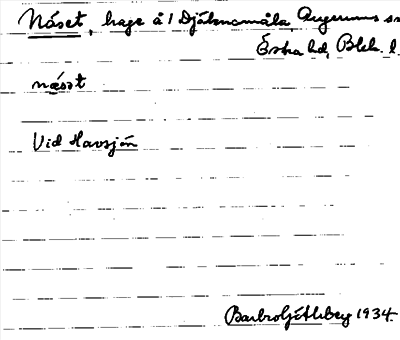 Näset, hage å 1 Djäknamåla, Augerums sn
Östra hd, Blek. l.
næset
Vid Havsjön
Ahlberg 1934.